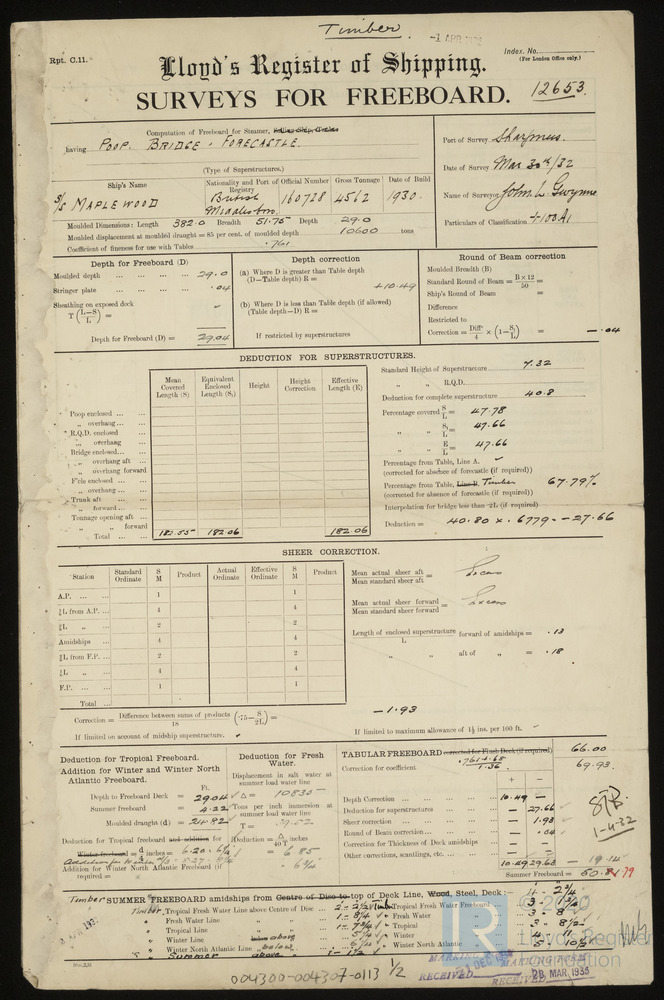 Timber
-1 APR
Rpt. C.11.
Index. No.
(For London Office only.)
Lloyd's Register of Shipping.
SURVEYS FOR FREEBOARD.
12653
Computation of Freeboard for Steamer,
having POOP. BRIDGE. FORECASTLE.
(Type of Superstructures.)
Port of Survey Sharpness.
Date of Survey Mar 30th/32
Name of Surveyor John L. Gwynne
Particulars of Classification +100A1
Ship's Name
Nationality and Port of Registry
Official Number
Gross Tonnage
Date of Build
S/S MAPLEWOOD
British
Middlesbro.
160728
4562
1930.
Moulded Dimensions: Length 382.0 Breadth 51.75 Depth 29.0
Moulded displacement at moulded draught = 85 per cent. of moulded depth 10600 tons
Coefficient of fineness for use with Tables .761
Depth for Freeboard (D)
Moulded depth 29.0
Stringer plate .04
Sheathing on exposed deck
T (L-S/L) =
Depth for Freeboard (D) = 29.04
Depth correction
(a) Where D is greater than Table depth
(D-Table depth) R = +10.49
(b) Where D is less than Table depth (if allowed)
(Table depth-D) R =
If restricted by superstructures
Round of Beam correction
Moulded Breadth (B)
Standard Round of Beam = B×12/50 =
Ship's Round of Beam =
Difference
Restricted to
Correction = Diff/4 × (1-S₁/L) = -.04
DEDUCTION FOR SUPERSTRUCTURES.
Mean Covered Length (S)
Equivalent Enclosed Length (S₁)
Height
Height Correction
Effective Length (E)
Poop enclosed
" overhang
R.Q.D. enclosed
" overhang
Bridge enclosed
" overhang aft
" overhang forward
F'cle enclosed
" overhang
Trunk aft
" forward
Tonnage opening aft
" " forward
Total 182.55 182.06 182.06
Standard Height of Superstructure 7.32
" " R.Q.D.
Deduction for complete superstructure 40.8
Percentage covered S/L = 47.78
" " S₁/L = 47.66
" " E/L = 47.66
Percentage from Table, Line A.
(corrected for absence of forecastle (if required))
Percentage from Table, Line B. Timber 67.79%
(corrected for absence of forecastle (if required))
Interpolation for bridge less than .2L (if required)
Deduction = 40.80 x .6779 = -27.66
SHEER CORRECTION.
Station
Standard Ordinate
S M
Product
Actual Ordinate
Effective Ordinate
S M
Product
A.P. 1 1
⅙L from A.P. 4 4
⅓L " 2 2
Amidships 4 4
⅓L from F.P. 2 2
⅙L " 4 4
F.P. 1 1
Total
Mean actual sheer aft / Mean standard sheer aft = Excess
Mean actual sheer forward / Mean standard sheer forward = Excess
Length of enclosed superstructure / L forward of amidships = .13
" " aft of " = .18
Correction = Difference between sums of products / 18 (.75-S/2L) = -1.93
If limited on account of midship superstructure.
If limited to maximum allowance of 1½ ins. per 100 ft.
Deduction for Tropical Freeboard.
Addition for Winter and Winter North Atlantic Freeboard.
Ft.
Depth to Freeboard Deck = 29.04
Summer freeboard = 4.22
Moulded draught (d) = 24.82
Deduction for Tropical freeboard and addition for
Winter freeboard = d/4 inches = 6.20 = 6¼
Addition for Winter North Atlantic Freeboard (if required) =
Deduction for Fresh Water.
Displacement in salt water at summer load water line
Δ = 10835
Tons per inch immersion at summer load water line
T =
Deduction = Δ/40T inches
= 6.85
= 6¾
TABULAR FREEBOARD corrected for Flush Deck (if required) 66.00
Correction for coefficient .761+.68/1.36 69.93
+ -
Depth Correction 10.49 -
Deduction for superstructures - 27.66
Sheer correction - 1.93
Round of Beam correction - .04
Correction for Thickness of Deck amidships
Other corrections, scantlings, etc.
10.49 29.63 -19.14
Summer Freeboard = 50.79
1-4-32
Timber SUMMER FREEBOARD amidships from Centre of Disc to top of Deck Line, Wood, Steel, Deck:-
Timber Tropical Fresh Water Line above Centre of Disc
" Fresh Water Line "
" Tropical Line "
" Winter Line above
" Winter North Atlantic Line below
" Summer above
Timber Tropical Fresh Water Freeboard
" Fresh Water "
" Tropical "
" Winter "
" Winter North Atlantic "
RECEIVED
RECEIVED 28 MAR 1933
LR
Lloyd's Register
Foundation
004300-004307-0113 1/2